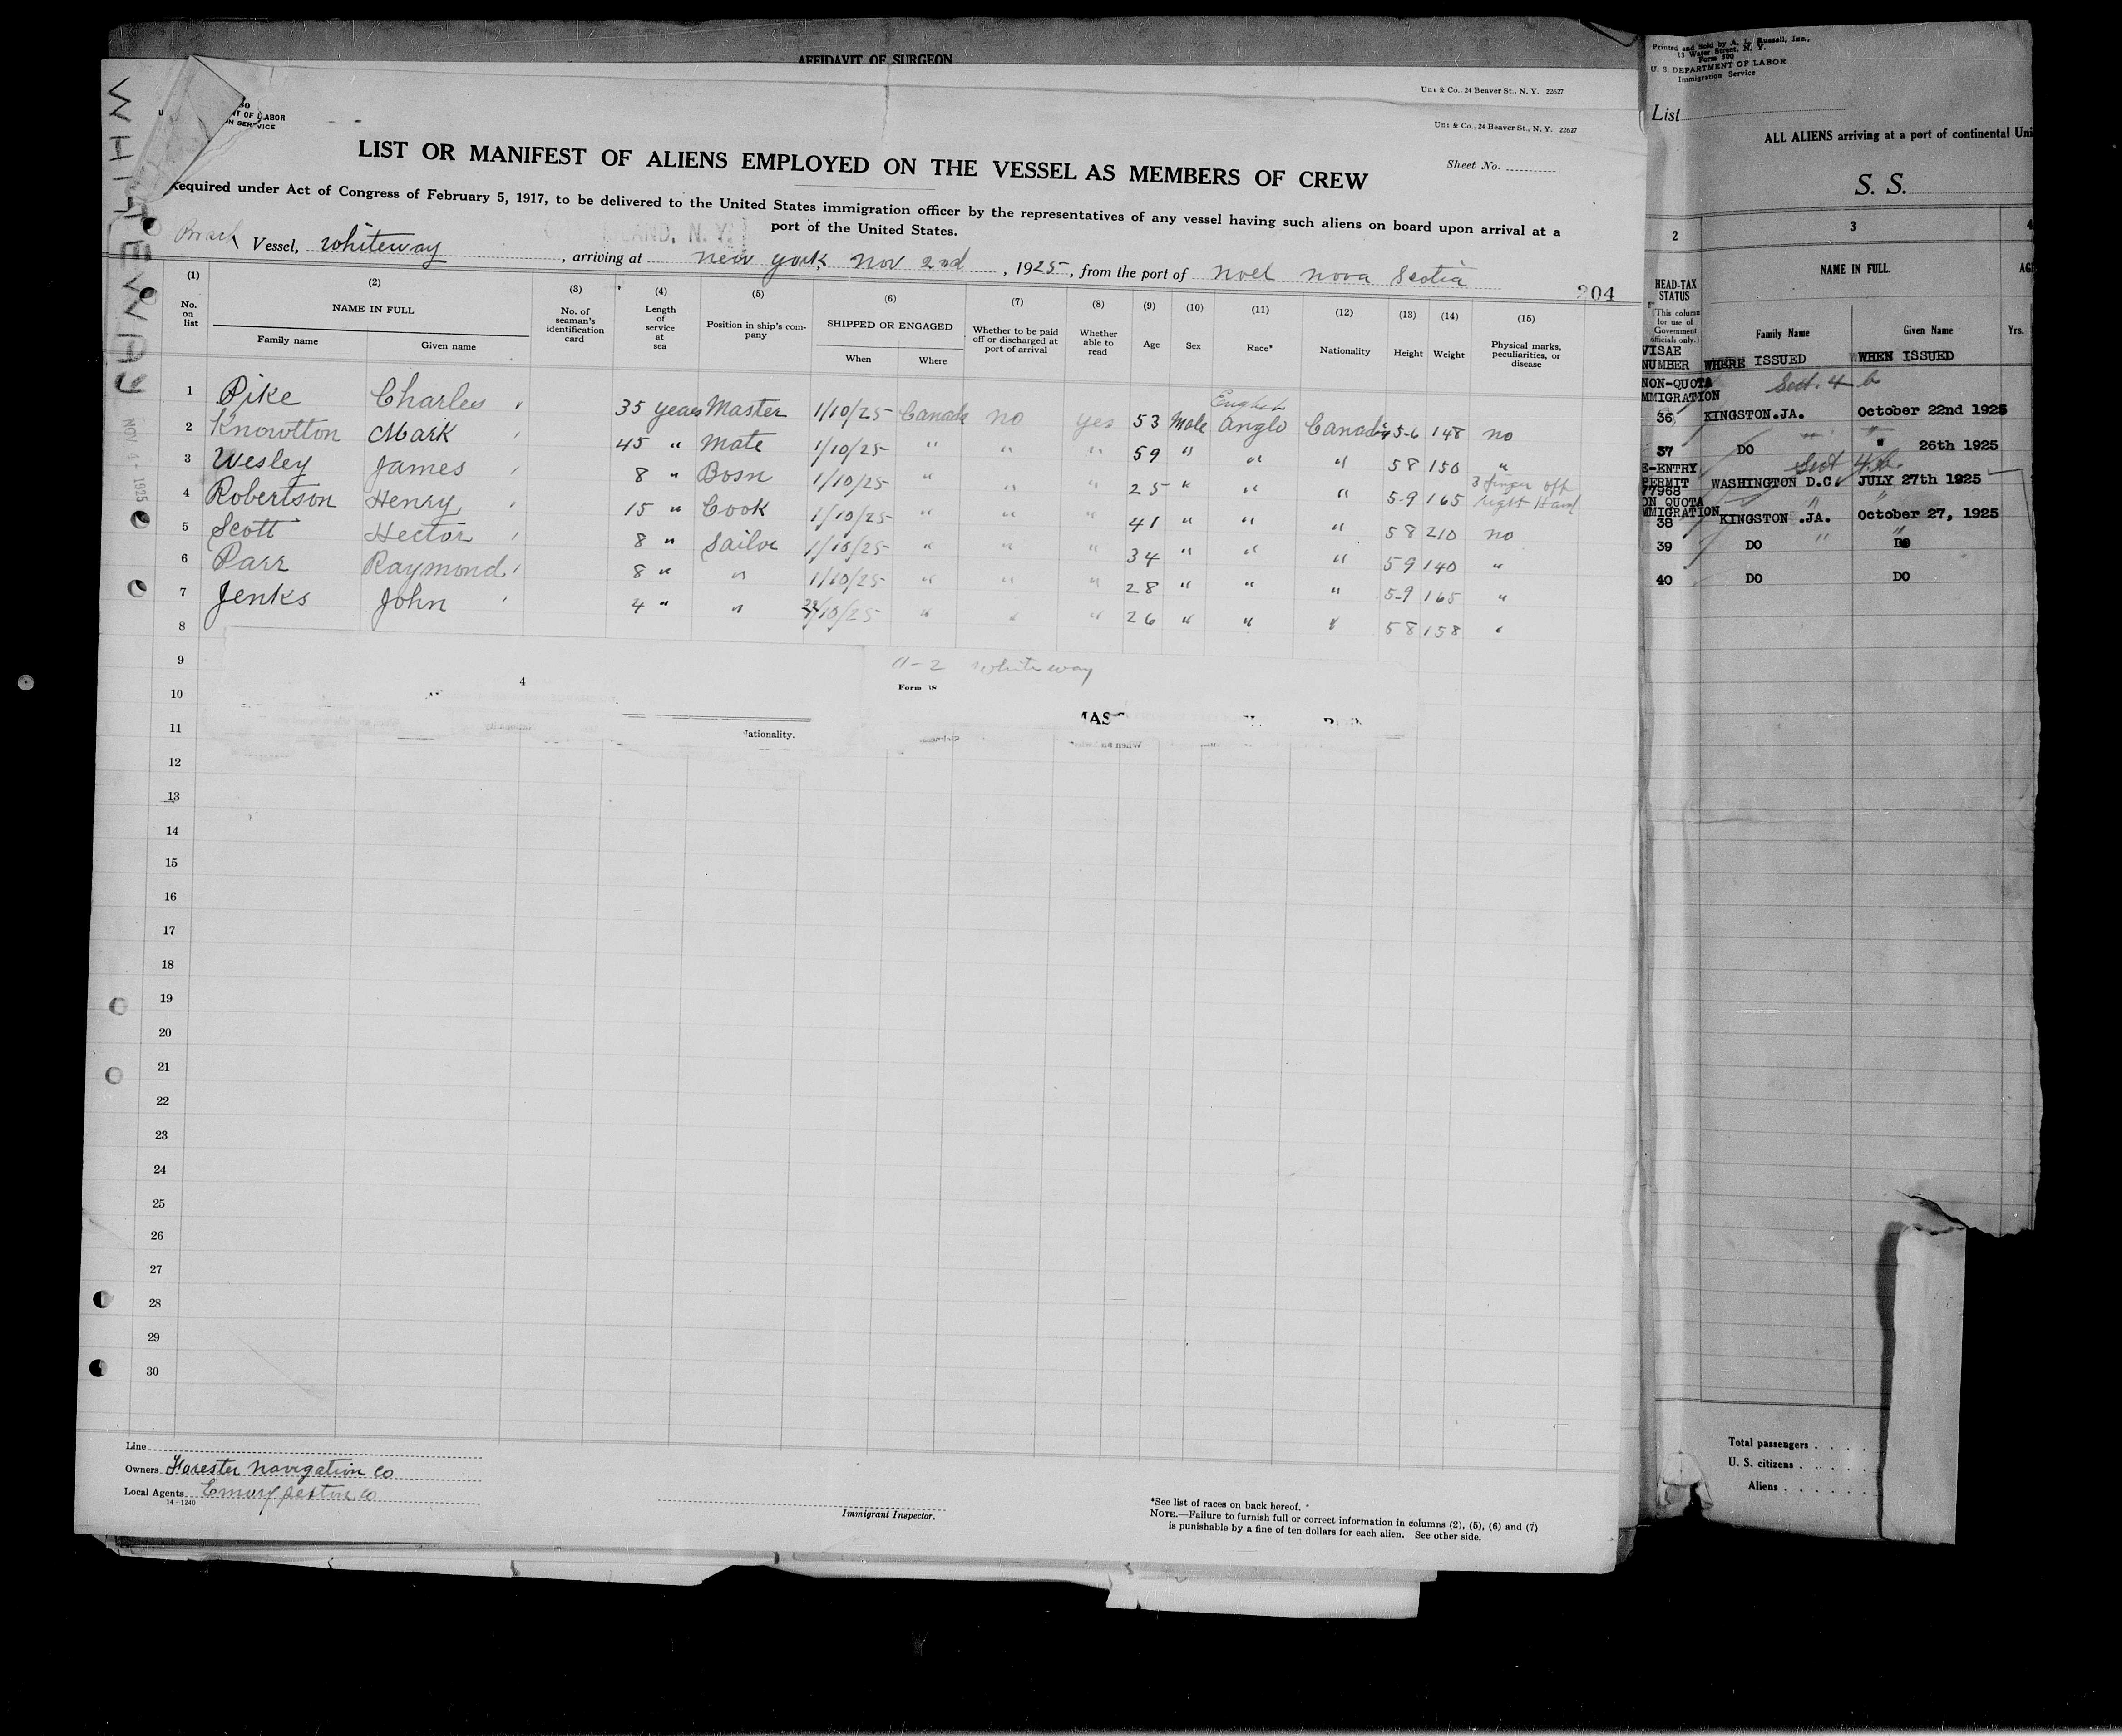 AFFIDAVIT OF SURGEON
WHITEWAY
NOV 4 - 1925
Uni & Co., 24 Beaver St., N. Y. 22627
Uni & Co., 24 Beaver St., N. Y. 22627
LIST OR MANIFEST OF ALIENS EMPLOYED ON THE VESSEL AS MEMBERS OF CREW
Sheet No.
Required under Act of Congress of February 5, 1917, to be delivered to the United States immigration officer by the representatives of any vessel having such aliens on board upon arrival at a
port of the United States.
Vessel, Whiteway, arriving at new york, nov 2nd, 1925, from the port of noel nova scotia
204
(1) (2) (3) (4) (5) (6) (7) (8) (9) (10) (11) (12) (13) (14) (15)
No. on list NAME IN FULL Family name Given name No. of seaman's identification card Length of service at sea Position in ship's company SHIPPED OR ENGAGED When Where Whether to be paid off or discharged at port of arrival Whether able to read Age Sex Race* Nationality Height Weight Physical marks, peculiarities, or disease
English
1 Pike Charles 35 years Master 1/10/25 Canada no yes 53 Male Anglo Canada 5-6 148 no
2 Knowtton Mark 45 " Mate 1/10/25 " " " 59 " " " 5 8 150 "
3 Wesley James 8 " Bosn 1/10/25 " " " 25 " " " 5-9 165 3 finger off right Hand
4 Robertson Henry 15 " Cook 1/10/25 " " " 41 " " " 5 8 210 no
5 Scott Hector 8 " Sailor 1/10/25 " " " 34 " " " 5 9 140 "
6 Parr Raymond 8 " " 1/10/25 " " " 28 " " " 5-9 165 "
7 Jenks John 4 " " /10/25 " " " 26 " " " 5 8 158 "
8
9
11-2 Whiteway
4
10
Form
11
Nationality.
12
13
14
15
16
17
18
19
20
21
22
23
24
25
26
27
28
29
30
Line
Owners Forester Navigation Co
Local Agents
14-1240
Immigrant Inspector.
*See list of races on back hereof.
NOTE.—Failure to furnish full or correct information in columns (2), (5), (6) and (7)
is punishable by a fine of ten dollars for each alien. See other side.
Printed and Sold by A. L. Russell, Inc.,
13 Water Street, N. Y.
Form 500
U. S. DEPARTMENT OF LABOR
Immigration Service
List
ALL ALIENS arriving at a port of continental Uni
S. S.
2 3 4
HEAD-TAX STATUS
(This column for use of Government officials only.)
NAME IN FULL.
Family Name Given Name Yrs.
VISAE NUMBER WHERE ISSUED WHEN ISSUED
NON-QUOTA IMMIGRATION Sect. 4 b
36 KINGSTON.JA. October 22nd 1925
37 DO " 26th 1925
Sect 4.b.
E-ENTRY PERMIT 77968 WASHINGTON D.C. JULY 27th 1925
ON QUOTA MMIGRATION
38 KINGSTON .JA. October 27, 1925
39 DO DO
40 DO DO
Total passengers . . . .
U. S. citizens . . . . .
Aliens . . . . . .